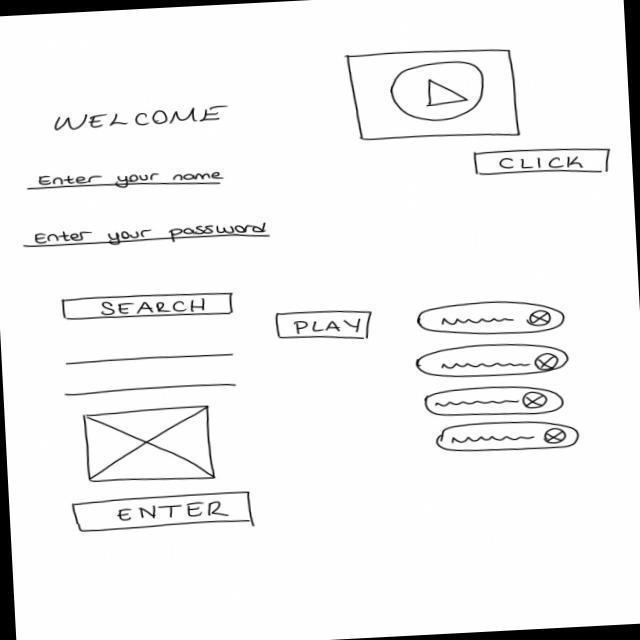 WELCOME
CLICK
Enter your name
Enter your password
SEARCH
PLAY
ENTER